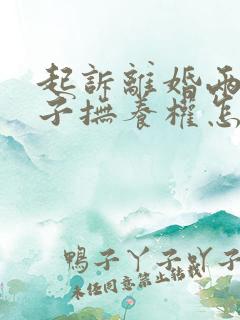 起訴離婚兩
子撫養權怎
鴨子丫子吖子
未经同意禁止转载